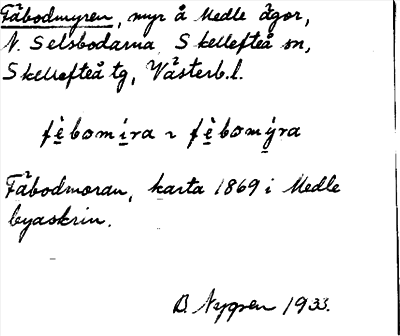 Fäbodmyren, myr å Medle ägor,
N. Selsbodarna Skellefteå sn,
Skellefteå tg, Västerb.l.
fèbomíra ~ fèbomýra
Fäbodmoran, karta 1869 i Medle
byaskrin.
B. Nygren 1933.